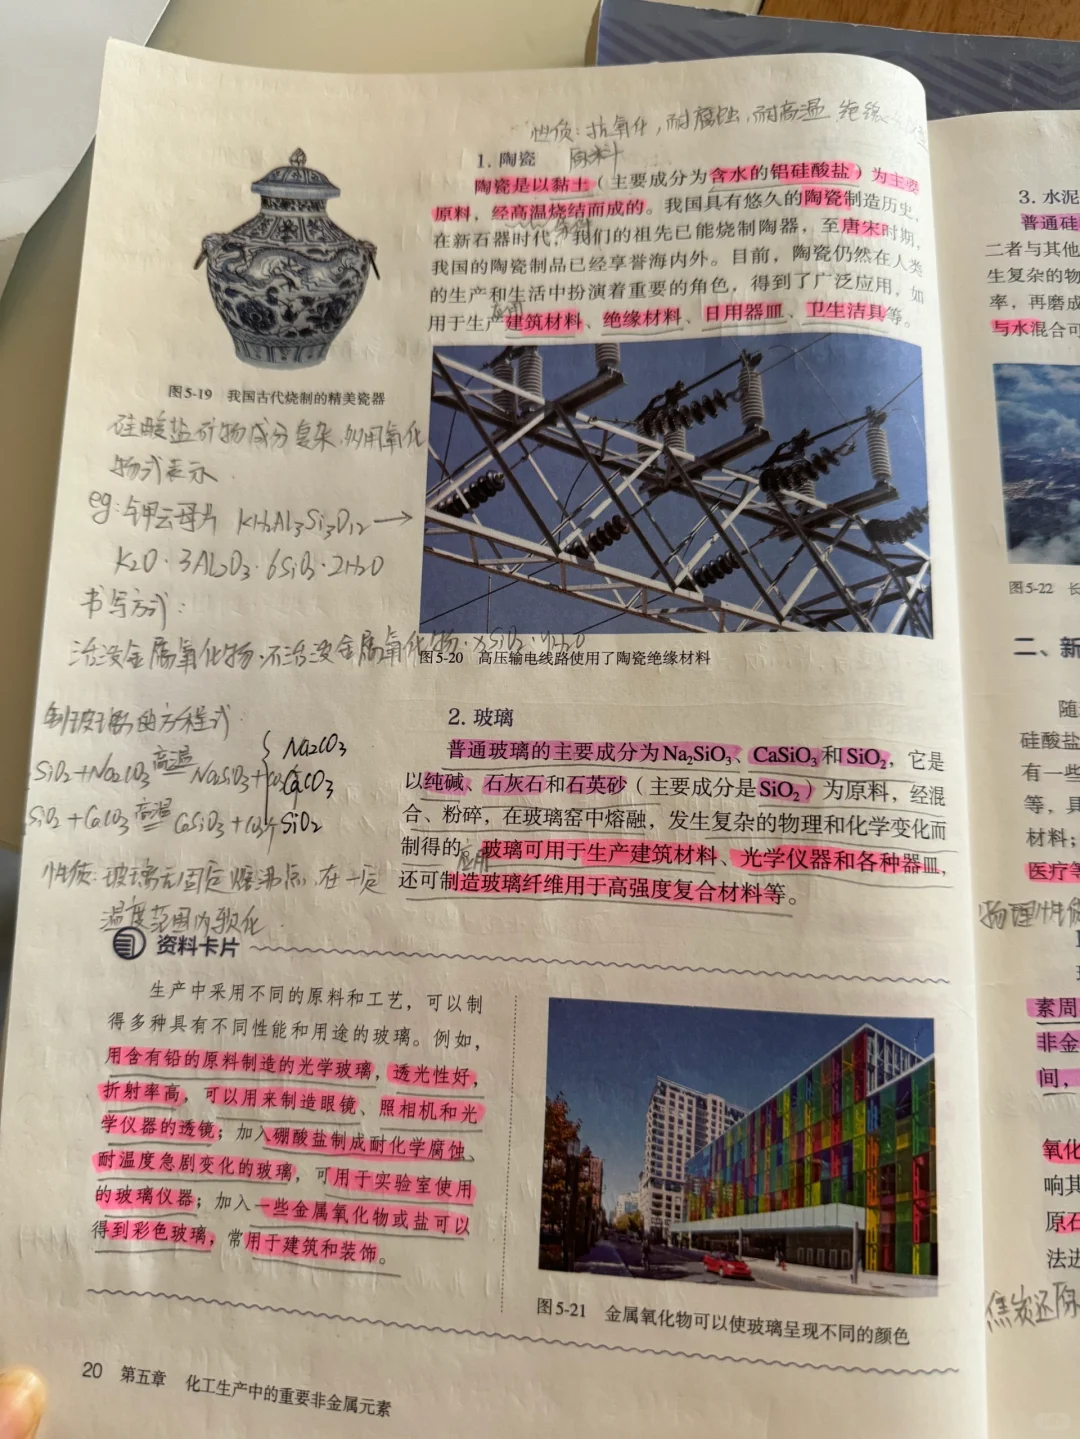 性质：抗氧化，耐腐蚀，耐高温 绝缘
1. 陶瓷 原料
陶瓷是以黏土（主要成分为含水的铝硅酸盐）为主要
原料，经高温烧结而成的。我国具有悠久的陶瓷制造历史，
条件
在新石器时代，我们的祖先已能烧制陶器，至唐宋时期，
我国的陶瓷制品已经享誉海内外。目前，陶瓷仍然在人类
的生产和生活中扮演着重要的角色，得到了广泛应用，如
应用
用于生产建筑材料、绝缘材料、日用器皿、卫生洁具等。
图5-19 我国古代烧制的精美瓷器
硅酸盐矿物成分复杂，多用氧化
物式表示
eg：钾云母片 KH2Al3Si3O12 →
K2O·3Al2O3·6SiO2·2H2O
书写方式：
活泼金属氧化物·不活泼金属氧化物·xSiO2·yH2O
图5-20 高压输电线路使用了陶瓷绝缘材料
制玻璃的方程式
SiO2+Na2CO3 高温 Na2SiO3+CO2↑
SiO2+CaCO3 高温 CaSiO3+CO2↑
{ Na2CO3
CaCO3
SiO2
性质：玻璃无固定熔沸点，在一定
温度范围内软化
2. 玻璃
普通玻璃的主要成分为Na₂SiO₃、CaSiO₃和SiO₂，它是
以纯碱、石灰石和石英砂（主要成分是SiO₂）为原料，经混
合、粉碎，在玻璃窑中熔融，发生复杂的物理和化学变化而
应用
制得的。玻璃可用于生产建筑材料、光学仪器和各种器皿，
还可制造玻璃纤维用于高强度复合材料等。
资料卡片
生产中采用不同的原料和工艺，可以制
得多种具有不同性能和用途的玻璃。例如，
用含有铅的原料制造的光学玻璃，透光性好，
折射率高，可以用来制造眼镜、照相机和光
学仪器的透镜；加入硼酸盐制成耐化学腐蚀、
耐温度急剧变化的玻璃，可用于实验室使用
的玻璃仪器；加入一些金属氧化物或盐可以
得到彩色玻璃，常用于建筑和装饰。
图5-21 金属氧化物可以使玻璃呈现不同的颜色
20 第五章 化工生产中的重要非金属元素
3. 水泥
普通硅
二者与其他
生复杂的物
率，再磨成
与水混合可
图5-22 长
二、新
随
硅酸盐
有一些
等，具
材料；
医疗等
物理性质
素周
非金
间，
氧化
响其
原石
法进
焦炭还原